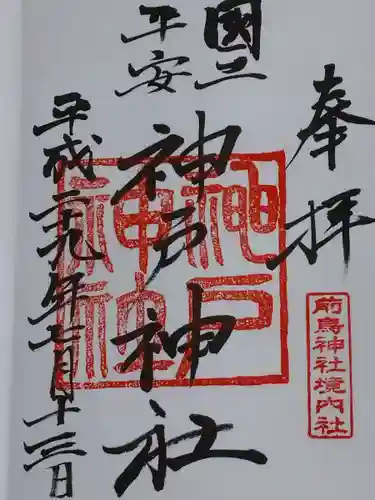 奉拝
前鳥神社境内社
國土
平安
神戸神社
平成二十九年七月十三日
神戸神社